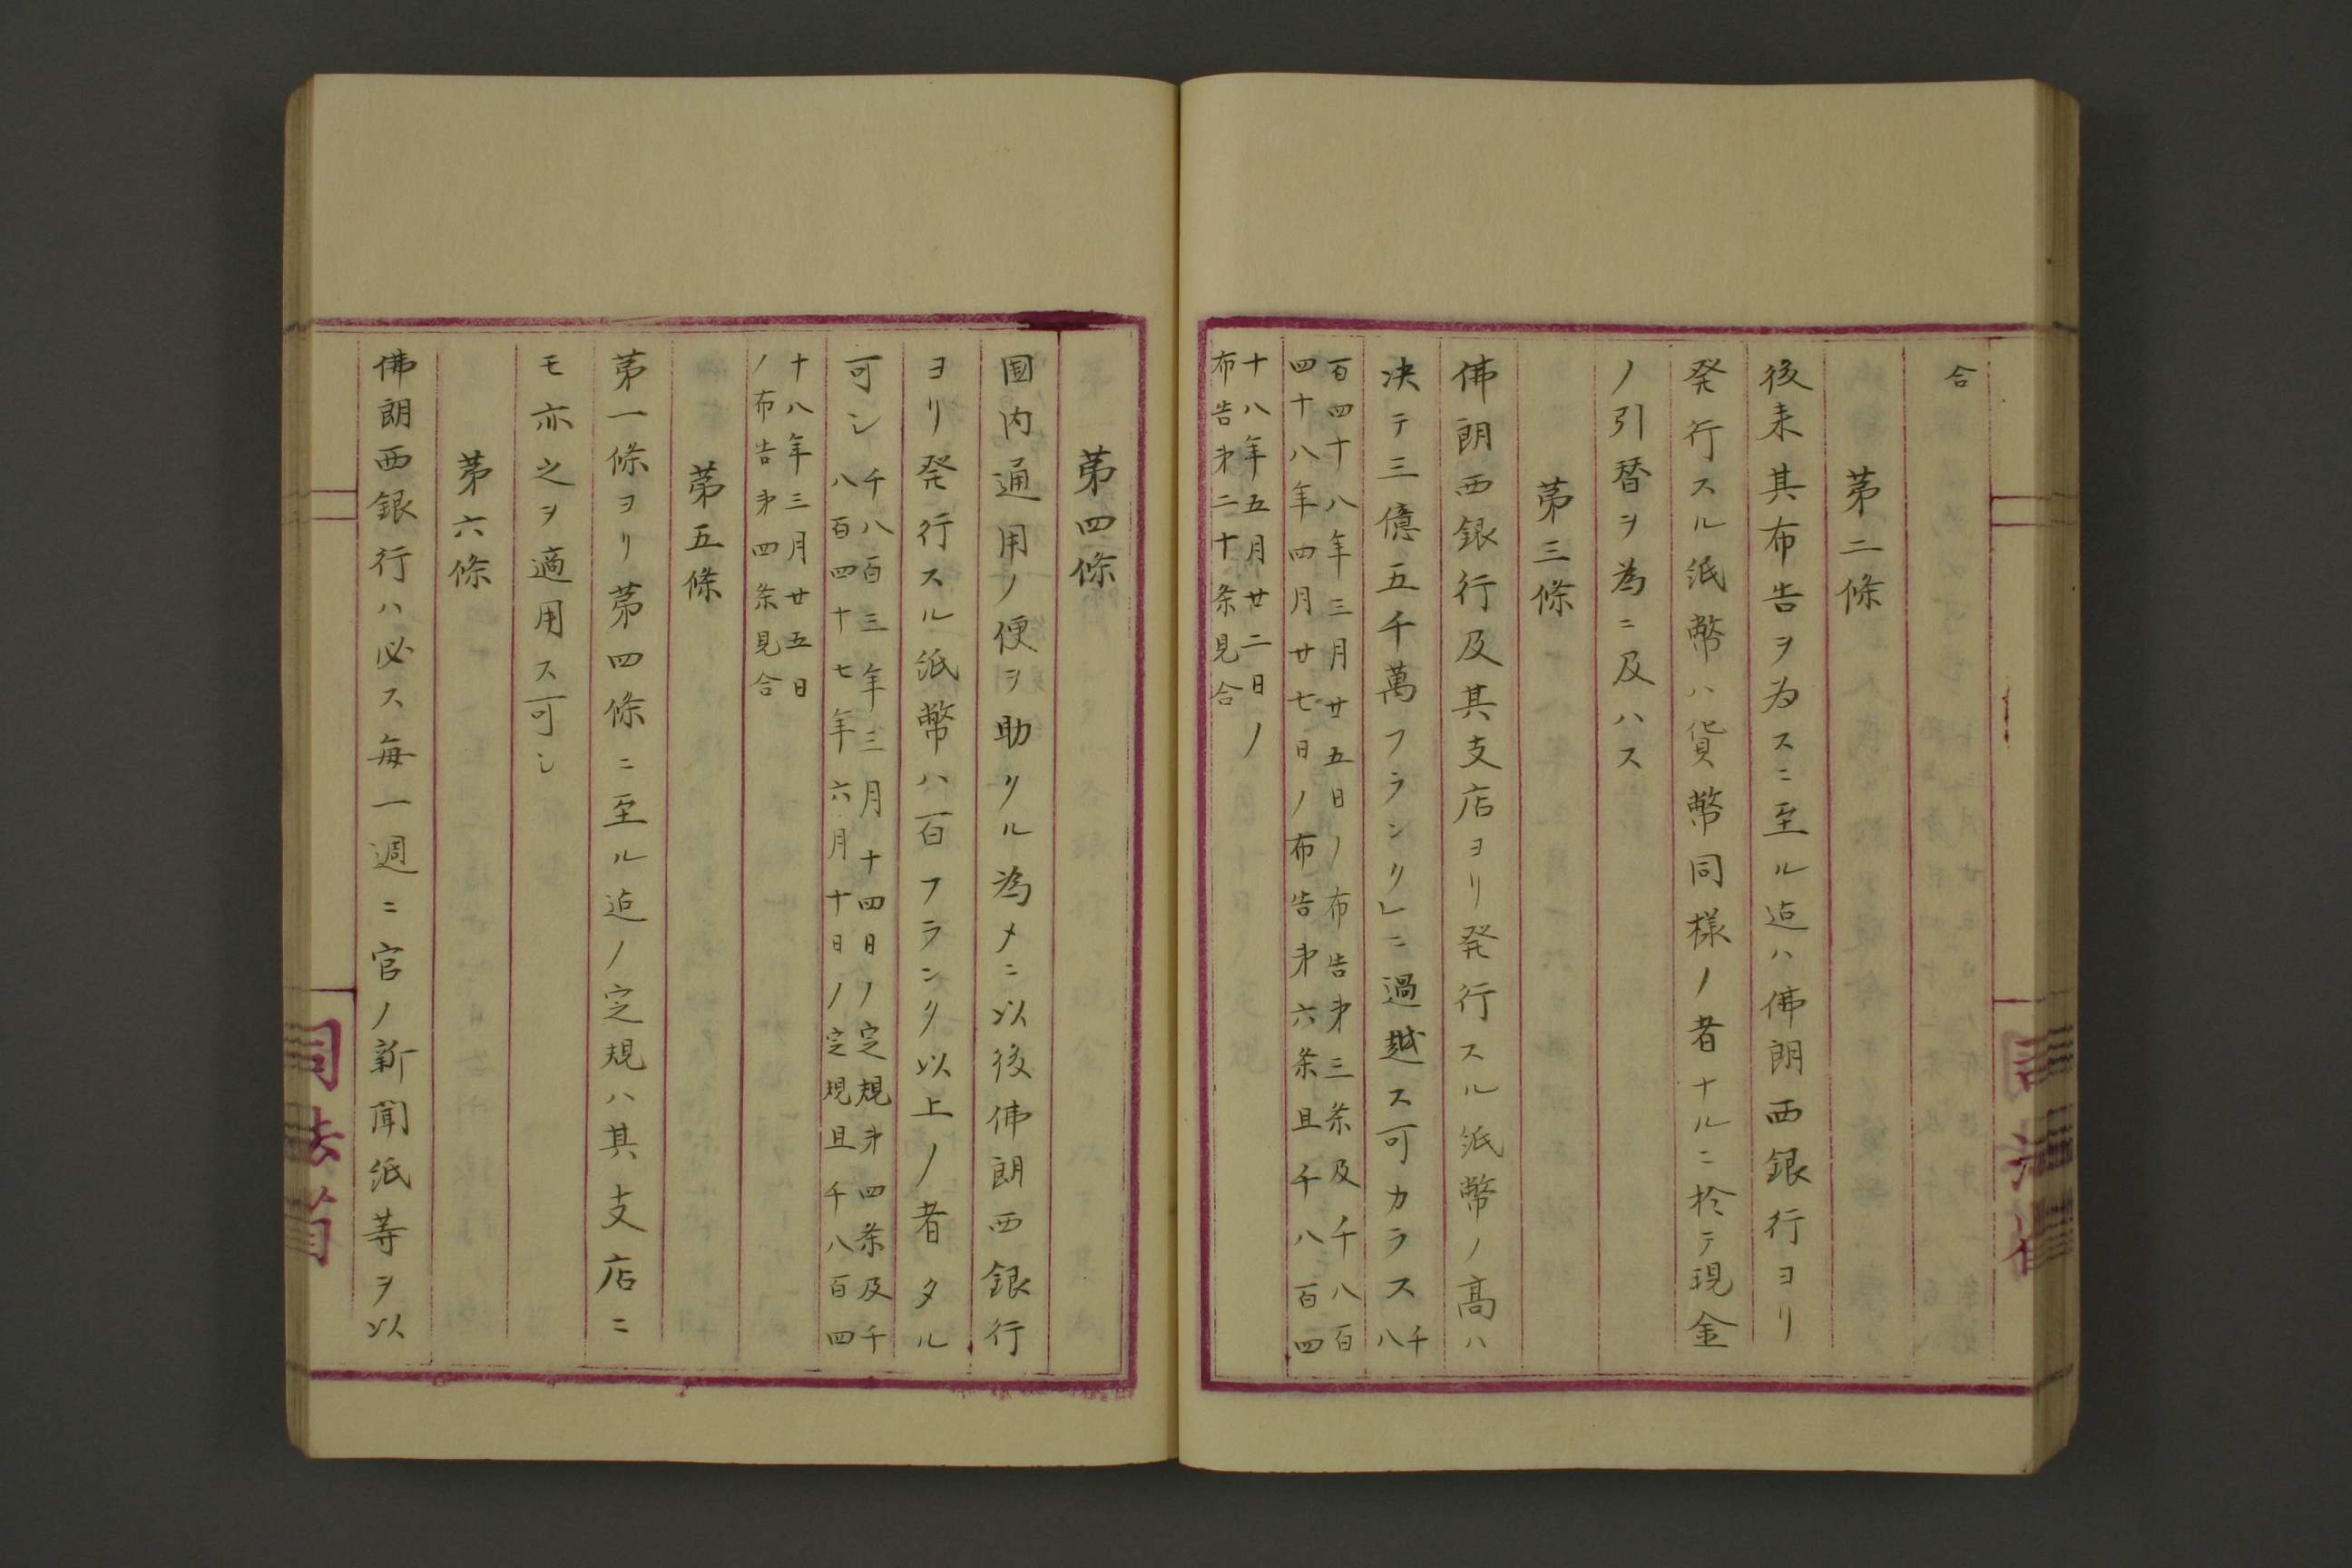 合
第二條
後来其布告ヲ為スニ至ル迠ハ佛朗西銀行ヨリ
発行スル紙幣ハ貨幣同様ノ者ナルニ於テ現金
ノ引替ヲ為ニ及ハス
第三條
佛朗西銀行及其支店ヨリ発行スル紙幣ノ高ハ
决テ三億五千萬フランク」ニ過越ス可カラス千
八
百四十八年三月廿五日ノ布告第三条及千八百
四十八年四月廿七日ノ布告第六条且千八百四
十八年五月廿二日ノ
布告第二十条見合
第四條
国内通用ノ便ヲ助クル為メニ以後佛朗西銀行
ヨリ発行スル紙幣ハ百フランク以上ノ者タル
可シ千八百三年三月十四日ノ定規第四条及千
八百四十七年六月十日ノ定規且千八百四
十八年三月廿五日
ノ布告第四条見合
第五條
第一條ヨリ第四條ニ至ル迠ノ定規ハ其支店ニ
モ亦之ヲ適用ス可シ
第六條
佛朗西銀行ハ必ス毎一週ニ官ノ新聞紙等ヲ以
司法省